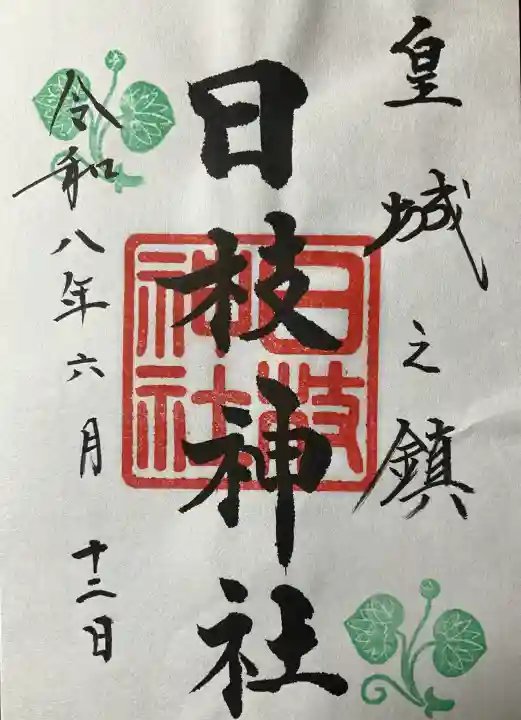 皇城之鎮
日枝神社
日枝神社
令和八年六月十二日